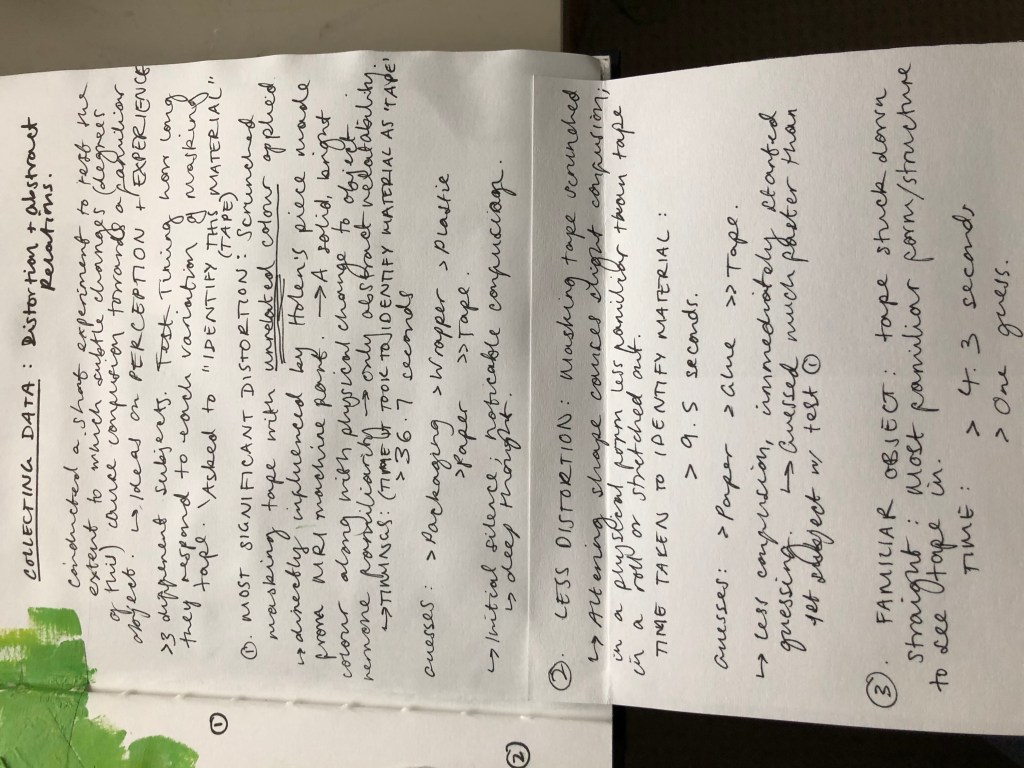 COLLECTING DATA : Distortion + abstract
Relations.
Conducted a short experiment to test the
extent to which subtle changes (degrees
of this) cause confusion towards a familiar
object. ↳ ideas on PERCEPTION + EXPERIENCE
>3 different subjects. Test timing how long
they respond to each variation of masking
tape. \Asked to "IDENTIFY THIS MATERIAL"
(TAPE)
① ①. MOST SIGNIFICANT DISTORTION: Scrunched
masking tape with unrelated colour applied.
↳ directly influenced by Helen's piece made
from MRI machine part. → A solid, bright
colour along with physical change to object
remove familiarity → only abstract relatability.
↳ TIMINGS: (TIME IT TOOK TO IDENTIFY MATERIAL AS 'TAPE'
> 36.7 seconds
Guesses: > Packaging > Wrapper > Plastic
> Paper >> Tape.
↳ Initial silence, noticable confuciaon.
↳ deep thought.
② ②. LESS DISTORTION: Masking tape scrunched
↳ Altering shape causes slight confusion,
in a physical form less familiar than tape
in a roll or stretched out.
TIME TAKEN TO IDENTIFY MATERIAL:
> 9.5 seconds.
Guesses: > Paper > Glue >> Tape.
↳ Less compression, immediately started
guessing. ↳ Guessed much faster than
1st subject w/ test ①
③. FAMILIAR OBJECT: tape stuck down
straight: Most familiar form/structure
to see tape in.
TIME: > 4.3 seconds
> One guess.